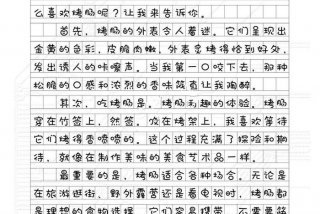 么喜欢烤肠呢？让我来告诉你。
首先，烤肠的外表令人着迷。它们呈现出
金黄的色彩，皮脆肉嫩，外表拿烤得恰到好处，
发出诱人的咔嚓声。当我第一口咬下去，那种
松脆的口感和浓烈的香味简直让我陶醉。
其次，吃烤肠是一种有趣的体验。烤肠
穿在竹签上，然后，放在烤架上，我喜欢等待
它们烤得香喷喷的。这个过程充满了探险和期
待，就像在制作美味的美食艺术品一样。
最重要的是，烤肠适合各种场合。无论是
在旅游逛街，野外露营还是看电视时，烤肠都
是理想的食物选择。它们容易携带，不需要